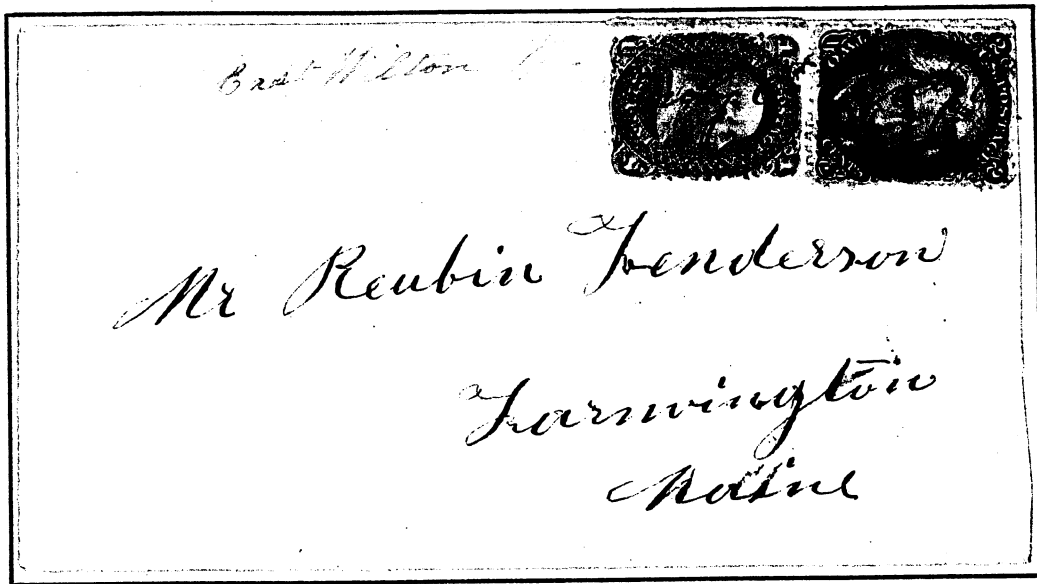 East Wilton
Mr Reubin Fenderson
Farmington
Maine